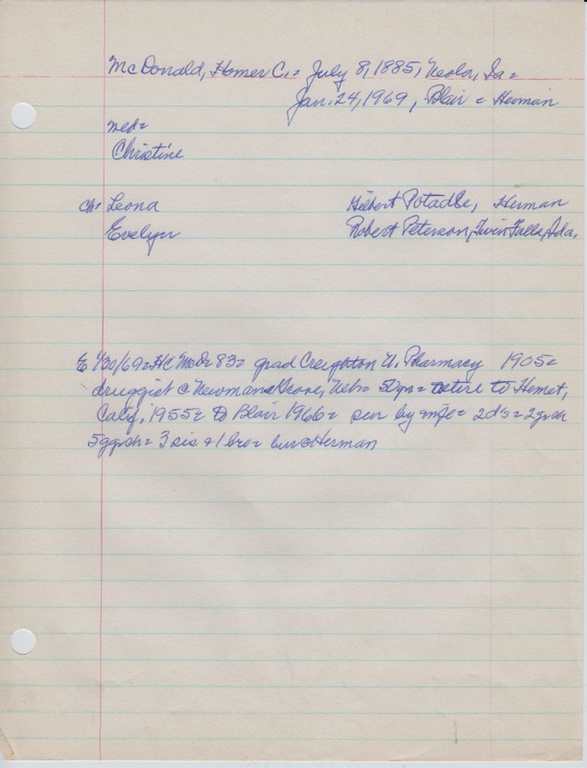 McDonald, Homer C. = July 8, 1885, Neola, Ia =
Jan. 24, 1969, Blair = Herman
wed =
Christine
ch = Leona Hilbert Herman
Evelyn Robert Peterson, Twin Falls, Ida.
E 1/30/69 = HC McD = 83 = grad Creighton U. Pharmacy 1905 =
druggist @ Newman Grove, Neb = 50 yrs = retire to Hemet,
Calif. 1955 = to Blair 1966 = sur by wife = 2 d's = 2 gch
5 ggch = 3 sis & 1 bro = bur @ Herman